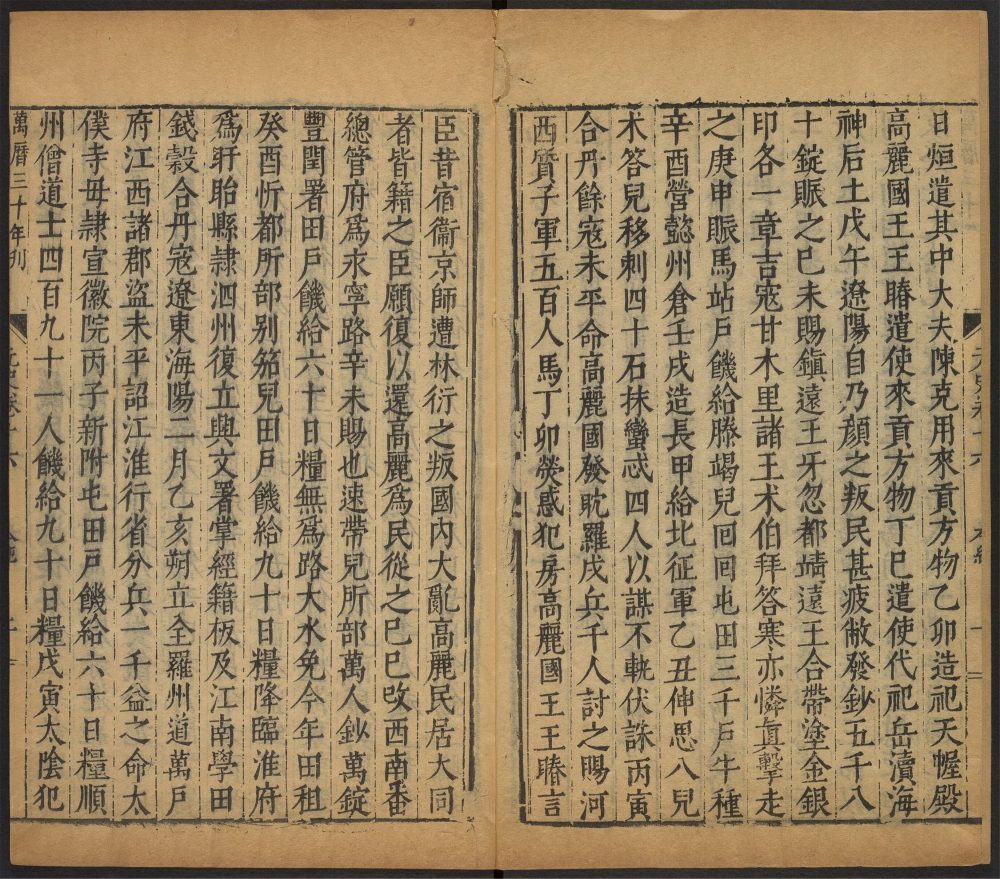 日烜遣其中大夫陳克用來貢方物乙卯造祀天幄殿
高麗國王王賰遣使來貢方物丁巳遣使代祀岳瀆海
神后土戊午遼陽自乃顔之叛民甚疲敝發鈔五千八
十錠賑之己未賜鎮遠王牙忽都靖遠王合帶塗金銀
印各一章吉寇甘木里諸王术伯拜答寒亦憐真擊走
之庚申賑馬站戶饑給滕竭兒回回屯田三千戶牛種
辛酉營懿州倉壬戌造長甲給北征軍乙丑伸思八兒
术答兒移剌四十石抹蠻忒四人以謀不軌伏誅丙寅
合丹餘寇未平命高麗國發躭羅戍兵千人討之賜河
西質子軍五百人馬丁卯熒惑犯房高麗國王王賰言
臣昔宿衞京師遭林衍之叛國內大亂高麗民居大同
者皆籍之臣願復以還高麗爲民從之己巳改西南番
總管府爲永寧路辛未賜也速帶兒所部萬人鈔萬錠
豐閏署田戶饑給六十日糧無爲路大水免今年田租
癸酉忻都所部別笳兒田戶饑給九十日糧降臨淮府
爲盱眙縣隷泗州復立興文署掌經籍板及江南學田
錢穀合丹寇遼東海陽二月乙亥朔立全羅州道萬戶
府江西諸郡盜未平詔江淮行省分兵一千益之命太
僕寺毋隷宣徽院丙子新附屯田戶饑給六十日糧順
州僧道士四百九十一人饑給九十日糧戊寅太陰犯
萬曆三十年刊